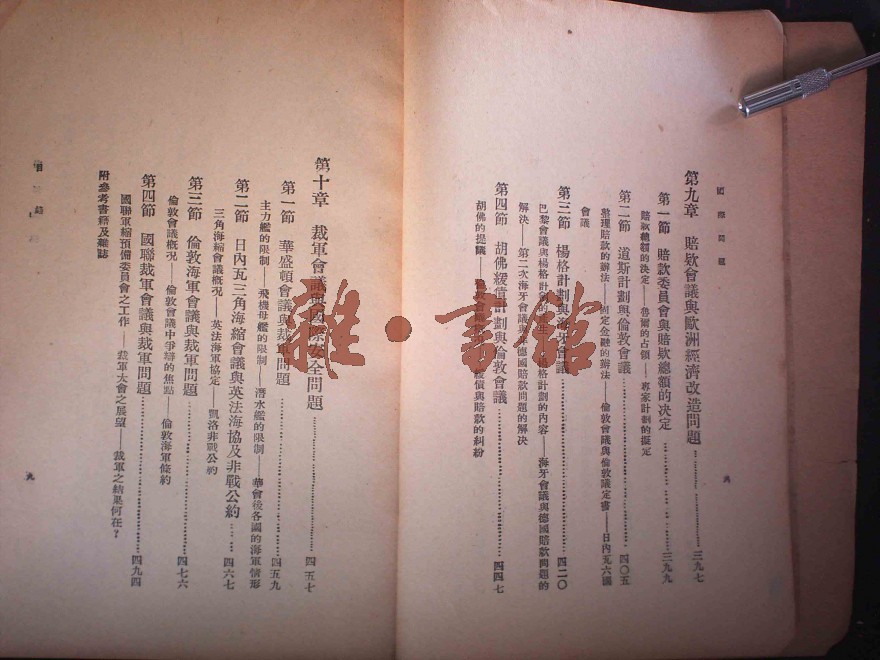 國際問題
第九章 賠款會議與歐洲經濟改造問題……三九七
第一節 賠款委員會與賠款總額的決定……三九九
賠款總額的決定——魯爾的占領——專家計劃的擬定
第二節 道斯計劃與倫敦會議……四〇五
整理賠款的辦法——固定金融的辦法——倫敦會議與倫敦議定書——日內瓦六國
會議
第三節 楊格計劃與海牙會議……四二〇
巴黎會議與楊格計劃的產生——楊格計劃的內容——海牙會議與德國賠款問題的
解決——第二次海牙會議與非德國賠款問題的解決
第四節 胡佛緩債計劃與倫敦會議……四四七
胡佛的提議——倫敦會議——緩債與賠款的糾紛
第十章 裁軍會議與國際安全問題……四五七
第一節 華盛頓會議與裁軍問題……四五九
主力艦的限制——飛機母艦的限制——潛水艦的限制——華會後各國的海軍情形
第二節 日內瓦三角海縮會議與英法海協及非戰公約……四六七
三角海縮會議概況——英法海軍協定——凱洛非戰公約
第三節 倫敦海軍會議與裁軍問題……四七六
倫敦會議概況——倫敦會議中爭辯的焦點——倫敦海軍條約
第四節 國聯裁軍會議與裁軍問題……四九四
國聯軍縮預備委員會之工作——裁軍大會之展望——裁軍之結果何在？
附參考書籍及雜誌
目錄
九
雜·書館